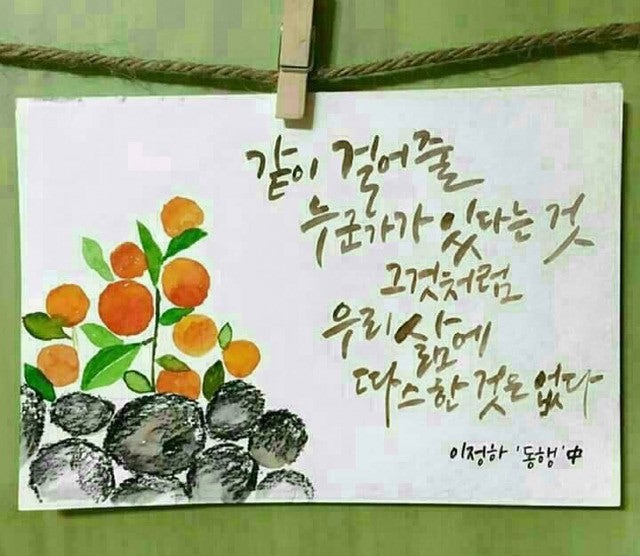 같이 걸어줄
누군가가 있다는 것
그것처럼
우리 삶에
따스한 것은 없다
이정하 '동행' 中